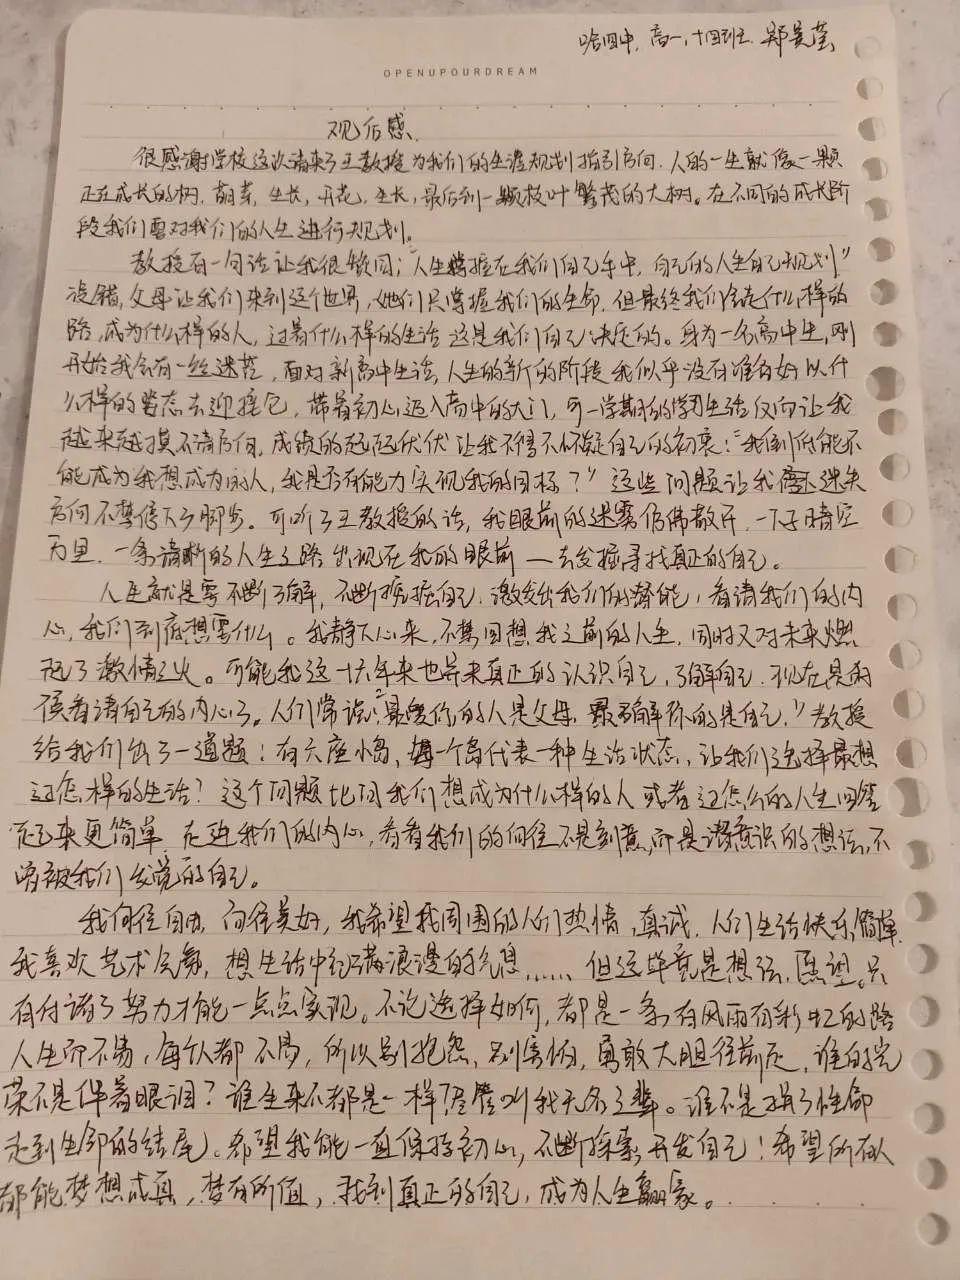 哈四中，高一、十四班 郑昊莹
OPENUPOURDREAM
观后感
很感谢学校这次请来了王教授为我们的生涯规划指引方向，人的一生就像一颗
正在成长的树，萌芽，生长，开花，生长，最后到一颗枝叶繁茂的大树。在不同的成长阶
段我们要对我们的人生进行规划。
教授有一句话让我很认同；"人生掌握在我们自己手中，自己的人生自己规划"
没错，父母让我们来到这个世界，她们只掌握我们的生命，但最终我们会走什么样的
路，成为什么样的人，过着什么样的生活 这是我们自己决定的。身为一名高中生，刚
开始我会有一丝迷茫，面对新高中生活，人生的新的阶段 我似乎没有准备好以什
么样的姿态去迎接它，带着初心迈入高中的大门，可一学期的学习生活仅向让我
越来越摸不清方向，成绩的起起伏伏 让我不得不怀疑自己的初衷："我到底能不
能成为我想成为的人，我是否有能力实现我的目标？"这些问题让我 迷失
方向不禁停下了脚步。可听了王教授的话，我眼前的迷雾仿佛散开，一下子晴空
万里，一条清晰的人生之路出现在我的眼前—去发掘寻找真正的自己。
人生就是要不断了解，不断挖掘自己，激发出我们的潜能，看清我们的内
心，我们到底想要什么。我静下心来，不禁回想我之前的人生，同时又对未来燃
起了激情之火。可能我这十六年来也算未真正的认识自己，了解自己，现在是时
候看清自己的内心了。人们常说："最爱你的人是父母，最了解你的是自己，"教授
给我们出了一道题：有六座小岛，每一个岛代表一种生活状态，让我们选择最想
过怎样的生活？这个问题比问我们想成为什么样的人 或者过怎么的人生回答
起来更简单 走进我们的内心，看看我们的向往 不是刻意，而是潜意识的想法，不
曾被我们发觉的自己。
我向往自由，向往美好，我希望我周围的人们热情，真诚，人们生活快乐，简单
我喜欢艺术 ，想生活中充满浪漫的气息…… 但这毕竟是想法，愿望。只
有付诸了努力才能一点点实现。不论选择如何，都是一条有风雨有彩虹的路
人生而不易，每个人都不易，所以别抱怨，别害怕，勇敢大胆往前走，谁的光
荣不是伴着眼泪？谁生来不都是一样 尽管叫我无名之辈。谁不是拼了性命
走到生命的结尾。希望我能一直保持初心，不断探索，开发自己！希望所有人
都能梦想成真，梦有所值，找到真正的自己，成为人生赢家。